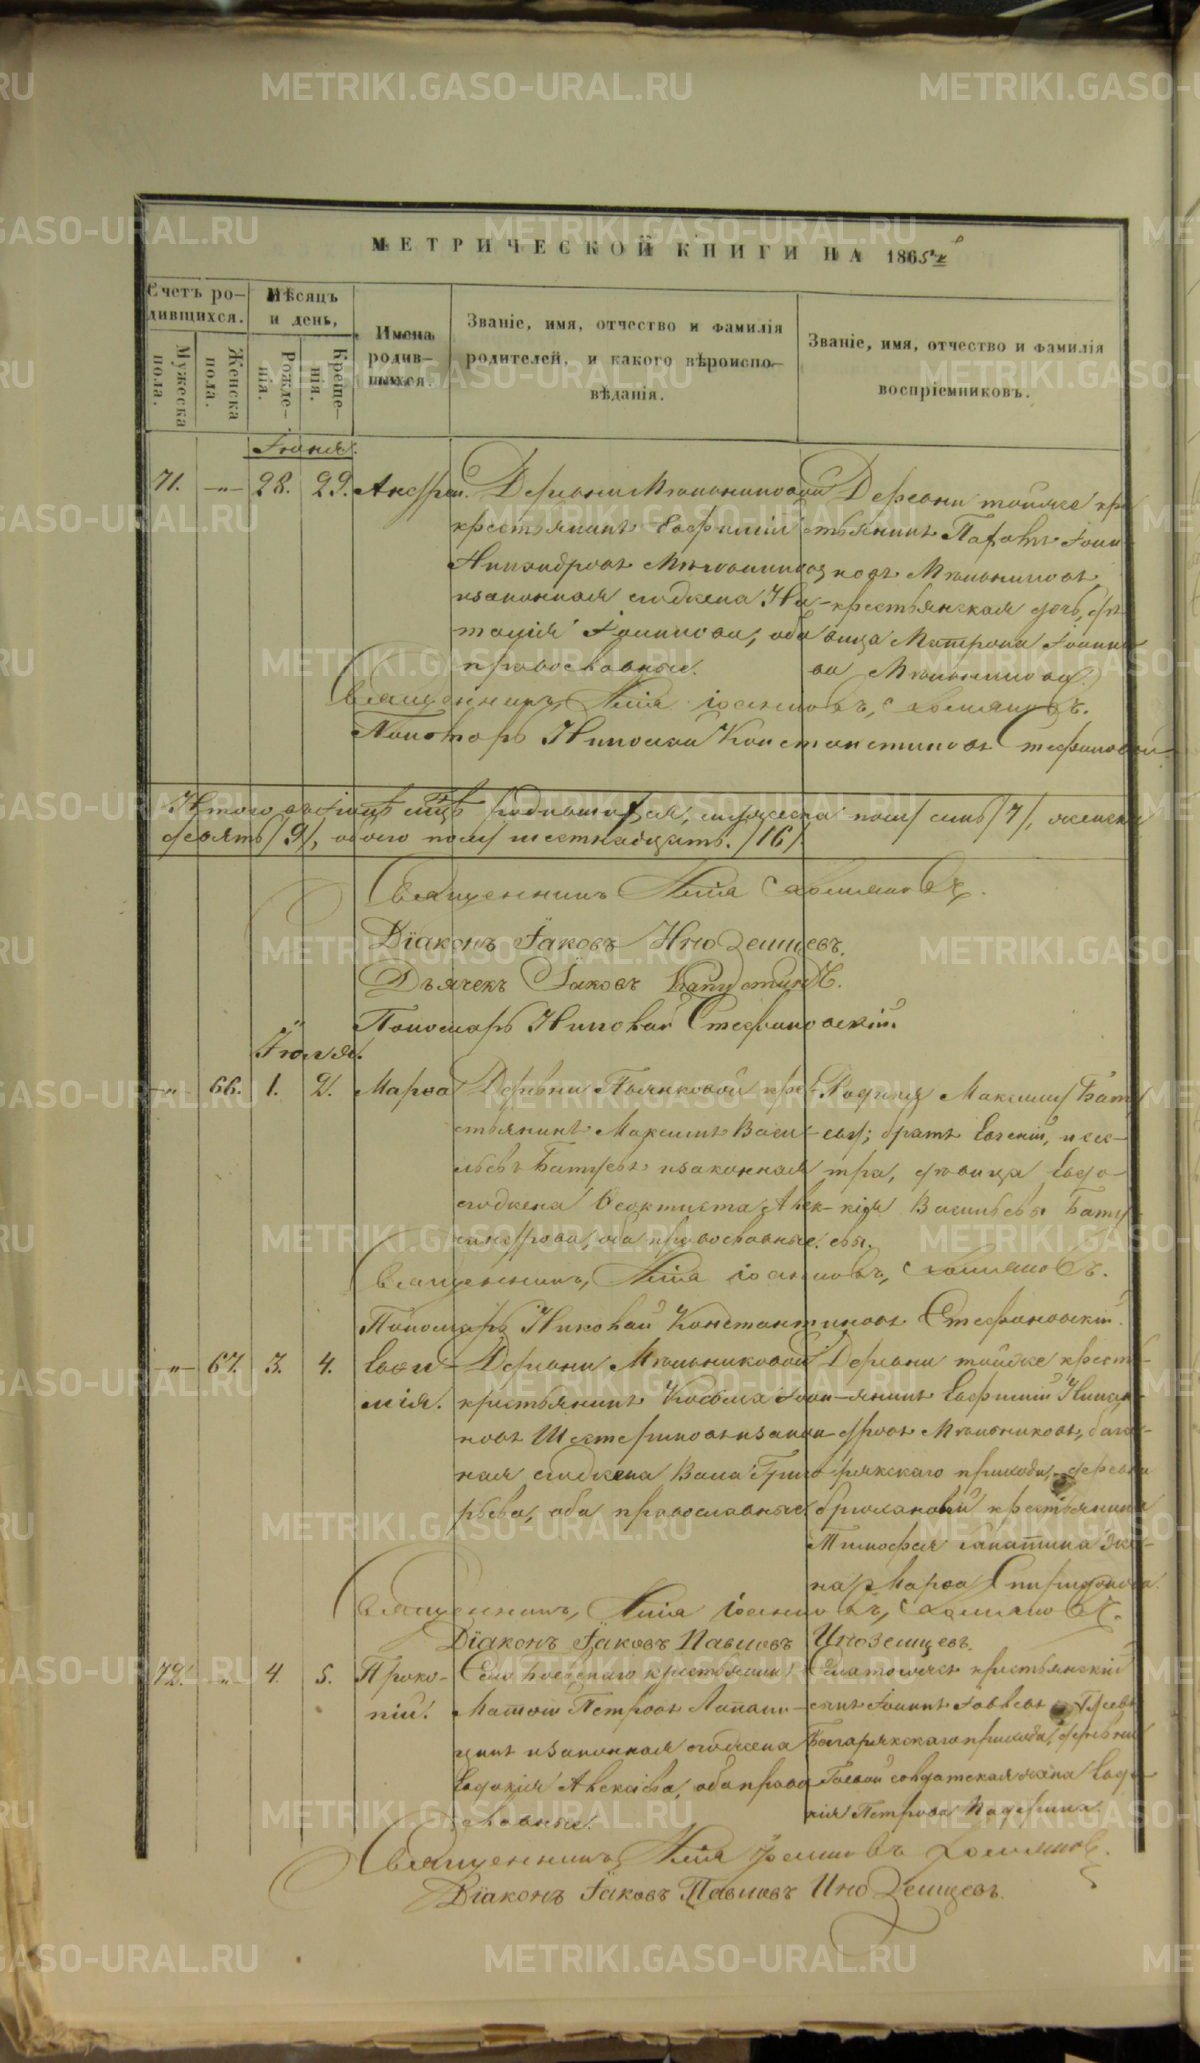 МЕТРИЧЕСКОЙ КНИГИ НА 1865 г.
Счетъ ро-
дившихся.
Мѣсяцъ
и день,
Имена
родив-
шихся.
Званіе, имя, отчество и фамилія
родителей, и какого вѣроиспо-
вѣданія.
Званіе, имя, отчество и фамилія
воспріемниковъ.
Мужеска
пола.
Женска
пола.
Рожде-
нія.
Креще-
нія.
Іюня.
71. -"- 28. 29. Андрей.
Деревни Мельниковой
крестьянинъ Евфимій
Никандровъ Мельниковъ
и законная его жена
Іоаннова, оба
православные.
Деревни тойже кре
стьянинъ Іоан
новъ Мельниковъ
крестьянская дочь, дѣ
вица Матрона Іоанно
ва Мельникова.
Священникъ, Илія Іоанновъ,
Пономарь Николай Константиновъ Стефановскій
Итого въ Іюнѣ мцѣ родившихся, мужеска пола семь /7/, женска
девять /9/, обоего пола шестнадцать. /16/.
Священникъ Илія
Діаконъ Іаковъ Иноземцевъ.
Дьячекъ Іаковъ Капустинъ.
Пономарь Николай Стефановскій.
Іюля.
-"- 66. 1. 2. Марѳа
Деревни Пьянковой кре
стьянинъ Максимъ Васи
льевъ Батуевъ и законная
его жена Ѳеоктиста Алек
сандрова, оба православные.
Родныя Максиму Бату
еву; братъ Евгеній, и сес-
тра, дѣвица Евдо-
кія Васильевы Бату
евы.
Священникъ, Илія Іоанновъ,
Пономарь Николай Константиновъ Стефановскій.
-"- 67. 3. 4. Евѳи-
мія.
Деревни Мельниковой
крестьянинъ Косьма Іоан-
новъ Шестериновъ и закон-
ная его жена Васса Григо
рьева, оба православные.
Деревни тойже кресть-
янинъ Евфимій Никан-
дровъ Мельниковъ, Бага-
рякскаго прихода, деревни
крестьянина
Тимоѳея жe-
на Марѳа Спиридонова.
Священникъ, Илія Іоанновъ,
Діаконъ Іаковъ Павловъ Иноземцевъ.
72. -"- 4. 5. Проко-
пій.
Села крестьянинъ
Матѳей Петровъ
и законная его жена
Евдокія Алексіева, оба право
славные.
Села тогоже крестьянскій
сынъ Іоаннъ Іовлевъ
Багарякскаго прихода, деревни
солдатская жена Евдо-
кія Петрова
Священникъ, Илія Іоанновъ
Діаконъ Іаковъ Павловъ Иноземцевъ.
METRIKI.GASO-URAL.RU